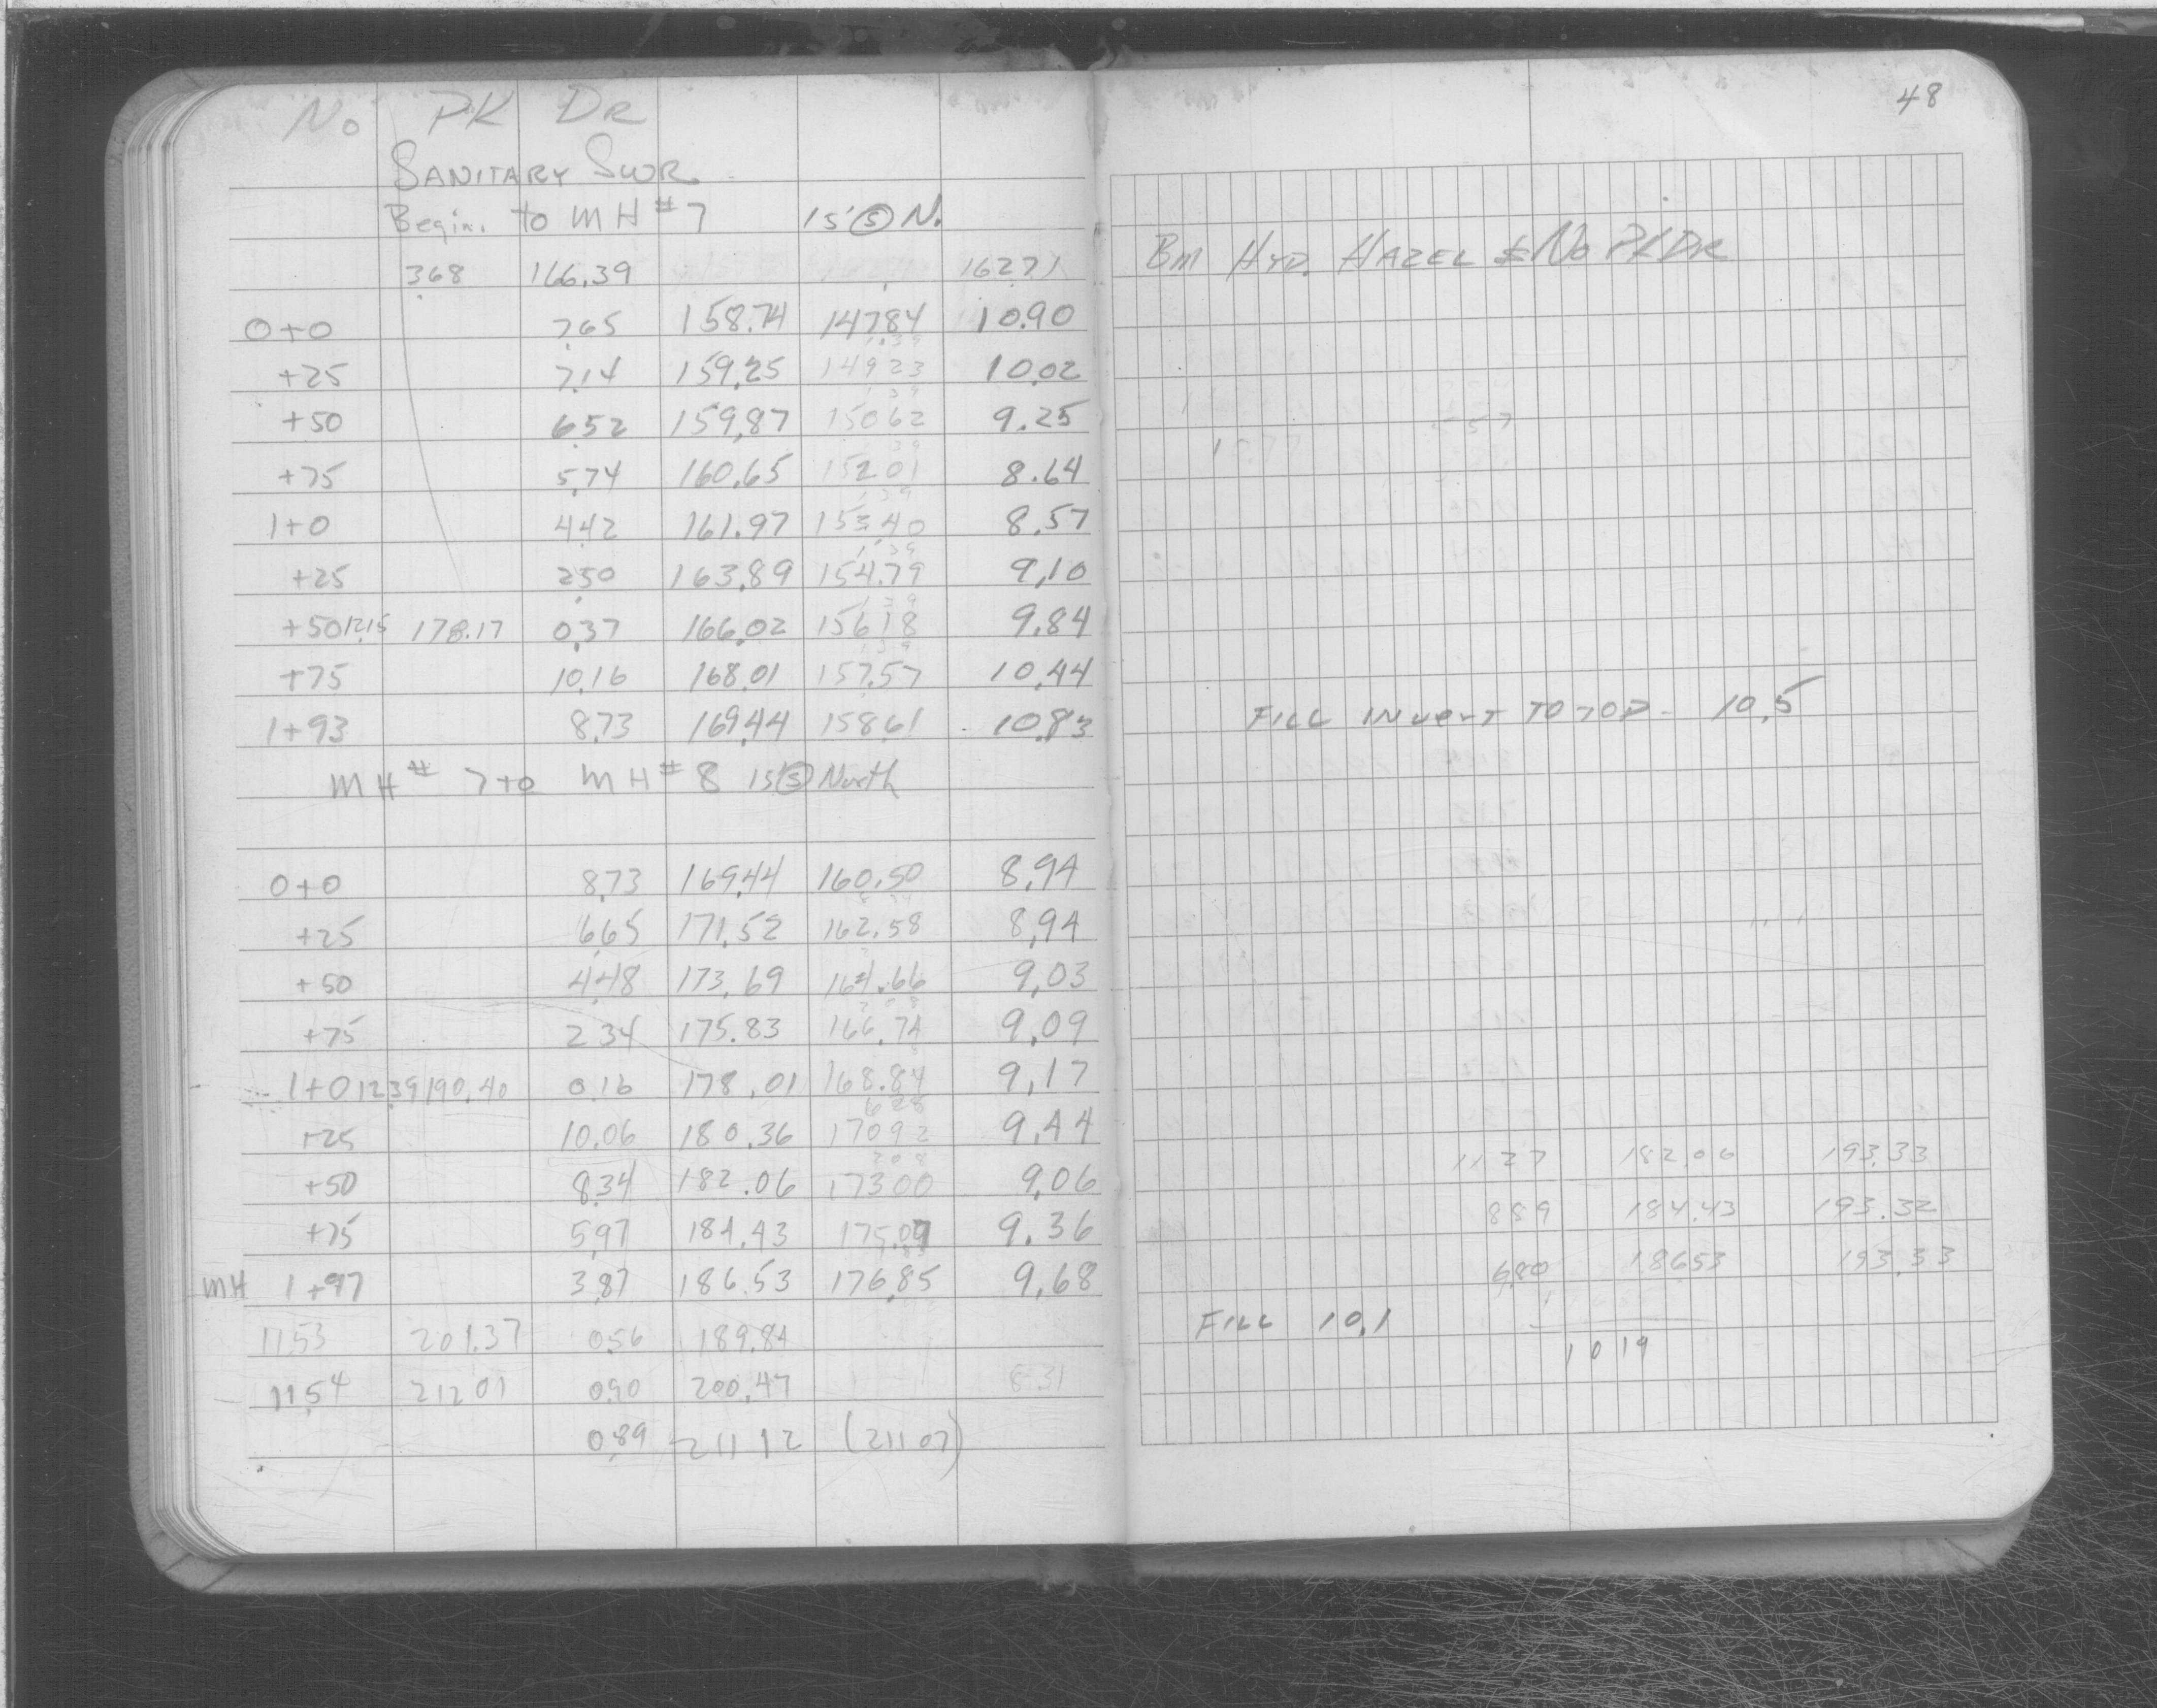 No PK DR
SANITARY SWR.
Begin. to MH #7 15' Ⓢ N.
368 166.39 162.71
0+0 7.65 158.74 147.84 10.90
1.39
+25 7.14 159.25 149.23 10.02
1 39
+50 6.52 159.87 150.62 9.25
39
+75 5.74 160.65 152.01 8.64
1 39
1+0 4.42 161.97 153.40 8.57
1 39
+25 2.50 163.89 154.79 9.10
1 39
+50 12.15 178.17 0.37 166.02 156.18 9.84
1 39
+75 10.16 168.01 157.57 10.44
1+93 8.73 169.44 158.61 10.83
MH # 7 to MH # 8 15' Ⓢ North
0+0 8.73 169.44 160.50 8.94
+25 6.65 171.52 162.58 8.94
+50 4.48 173.69 164.66 9.03
2 08
+75 2.34 175.83 166.74 9.09
1+0 12.39 190.40 0.16 178.01 168.84 9.17
+25 10.06 180.36 170.92 9.44
2 08
+50 8.34 182.06 173.00 9.06
+75 5.97 184.43 175.07 9.36
MH 1+97 3.87 186.53 176.85 9.68
11.53 201.37 0.56 189.84
11.54 212.01 0.90 200.47 8.31
0.89 211 12 (211 07)
48
BM HYD. HAZEL & No PK DR
FILL INVERT TO TOP - 10.5
11 27 182.06 193.33
889 184.43 193.32
6.80 186.53 193.33
FILL 10.1
10 19